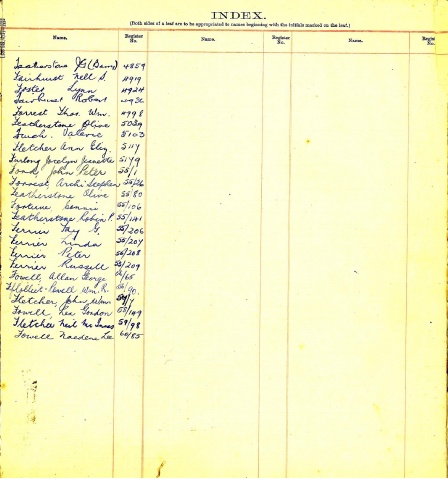 INDEX.
(Both sides of a leaf are to be appropriated to names beginning with the initials marked on the leaf.)
Name. Register No. Name. Register No. Name. Register No.
4859
Fairhurst Nell S. 4919
Foster Lynn 4924
Fairhurst Robert
Forrest Thos. Wm. 4998
Featherstone Olive
Valerie 5103
Fletcher Ann Eliz. 5117
Furlong Jocelyn Jeanette 5149
Ford, John Peter 55/1
Forrest, Archi Stephen 55/26
Featherstone Olive 55/80
Fortune 55/106
Featherstone Robin P. 55/141
Ferrier Fay G. 55/206
Ferrier Linda 55/207
Ferrier Peter 55/208
Ferrier Russell 55/209
Fowell, Allan George /65
Powell Wm. R.
Fletcher John Wm.
Fowell, Gordon /149
Fletcher Neil Mc Innes 59/98
Fowell Naedene Lee 60/85